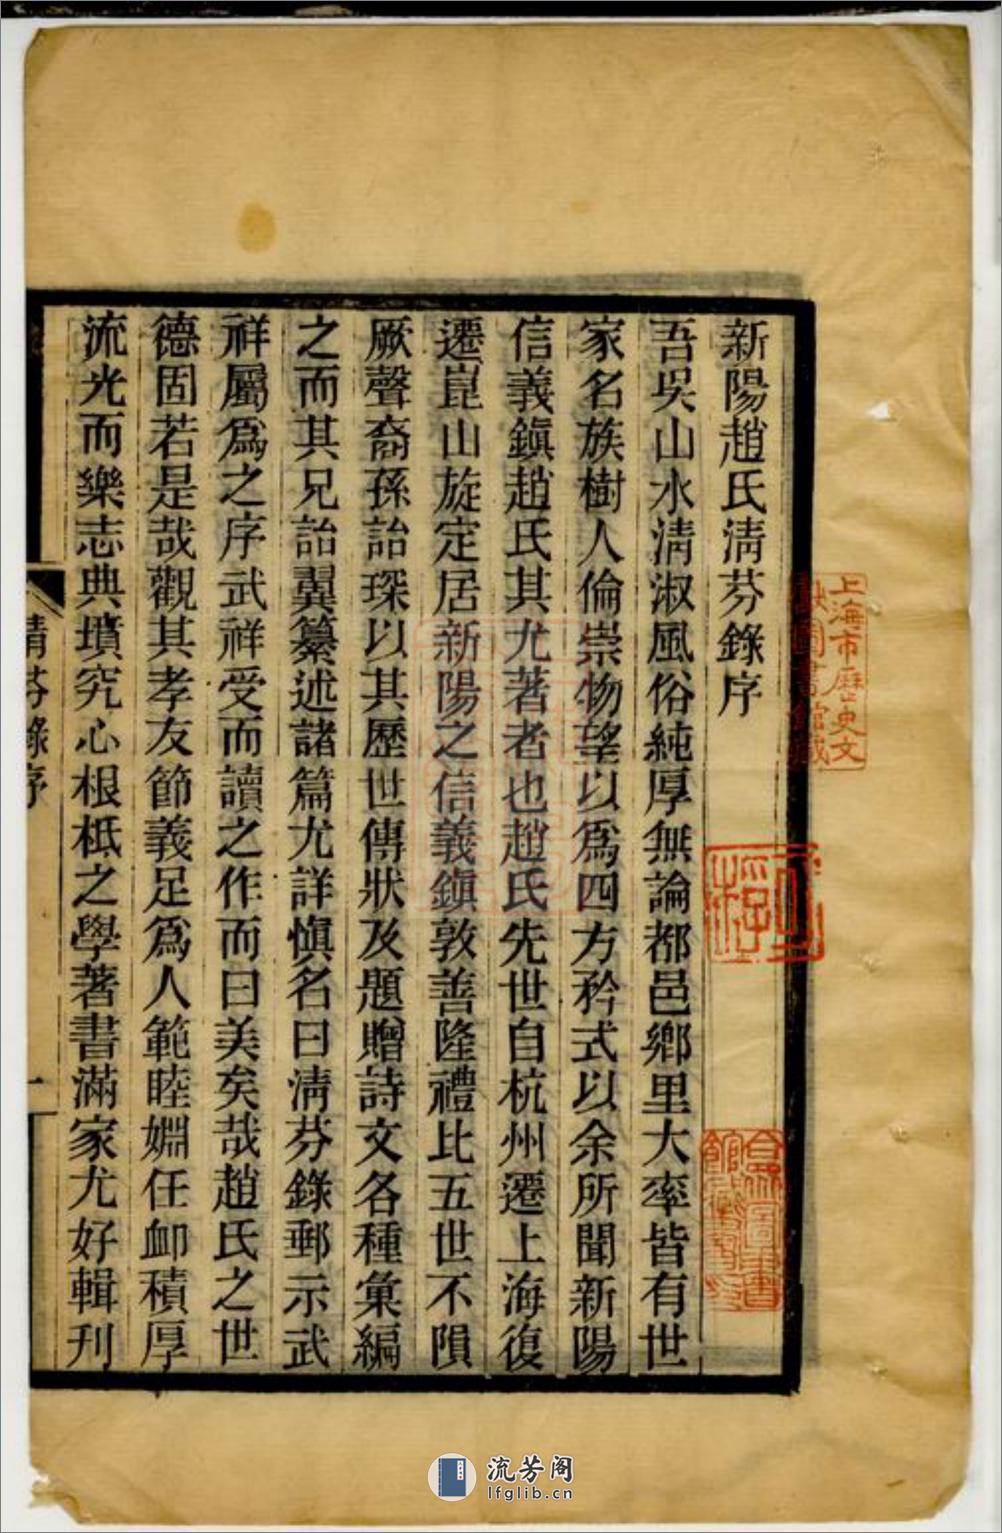 新陽趙氏清芬錄序
吾吳山水清淑風俗純厚無論都邑鄉里大率皆有世
家名族樹人倫崇物望以爲四方矜式以余所聞新陽
信義鎭趙氏其尤著者也趙氏先世自杭州遷上海復
遷崑山旋定居新陽之信義鎭敦善隆禮比五世不隕
厥聲裔孫詒琛以其歷世傳狀及題贈詩文各種彙編
之而其兄詒翼纂述諸篇尤詳愼名曰淸芬錄郵示武
祥屬爲之序武祥受而讀之作而曰美矣哉趙氏之世
德固若是哉觀其孝友節義足爲人範睦婣任卹積厚
流光而樂志典墳究心根柢之學著書滿家尤好輯刊
清芬錄序
一
上海市歷史文
獻圖書館藏
流芳阁
lfglib.cn